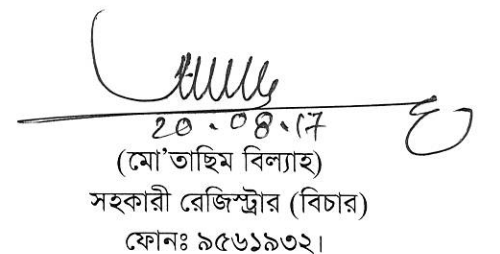 20.08.17
(মো'তাছিম বিল্যাহ)
সহকারী রেজিস্ট্রার (বিচার)
ফোনঃ ৯৫৬১৯৩২।